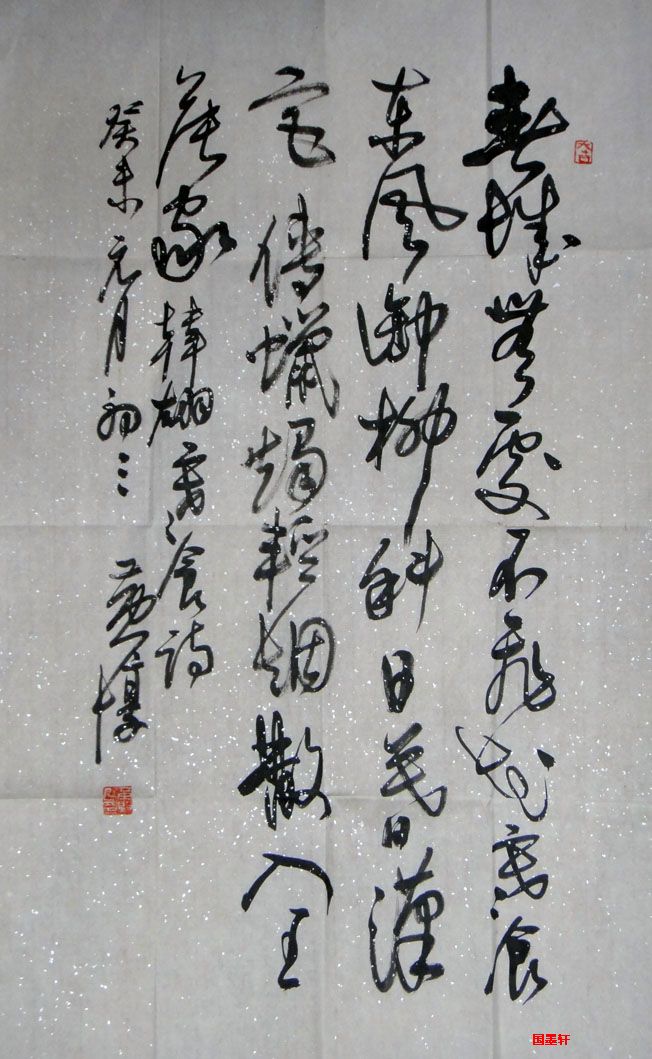 春城無處不飛花寒食
東風御柳斜日暮漢
宮傳蠟燭輕烟散入五
侯家韓翃寒食詩
癸未元月初三 黃惇
国墨轩